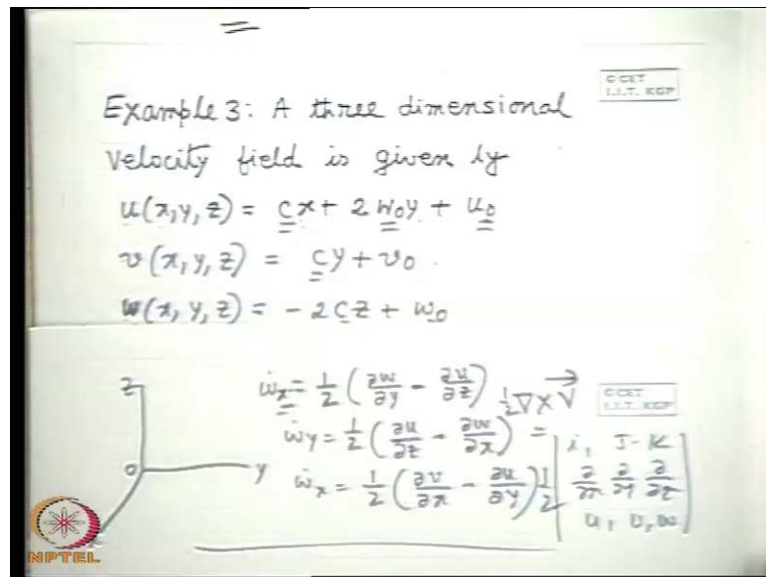 © CET
I.I.T. KGP
Example 3: A three dimensional
velocity field is given by
u(x,y,z) = cx + 2w₀y + u₀
v(x,y,z) = cy + v₀
w(x,y,z) = -2cz + w₀
z
o
y
ẇx = 1/2 (∂w/∂y - ∂u/∂z) 1/2 ∇ × V⃗
© CET
I.I.T. KGP
ẇy = 1/2 (∂u/∂z - ∂w/∂x) =
ẇx = 1/2 (∂v/∂x - ∂u/∂y) 1/2
| i, J - K |
| ∂/∂x ∂/∂y ∂/∂z |
| u, v, w |
NPTEL